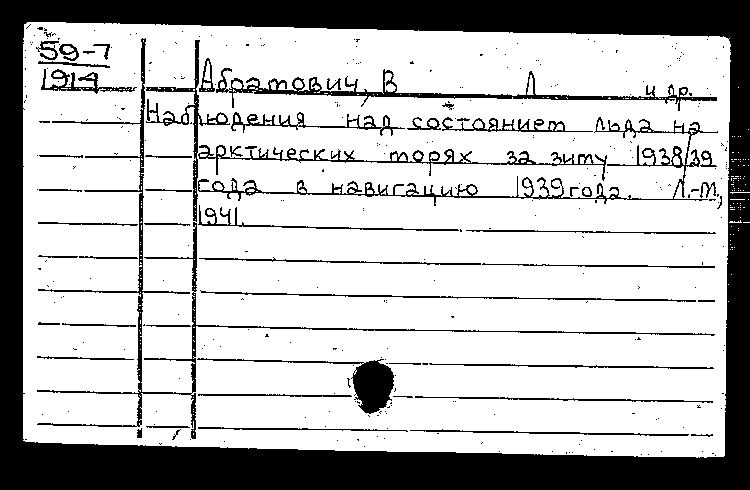 59-7
1914
Абрамович, В Л и др.
Наблюдения над состоянием льда на
арктических морях за зиму 1938/39
года в навигацию 1939 года. Л.-М.,
1941.